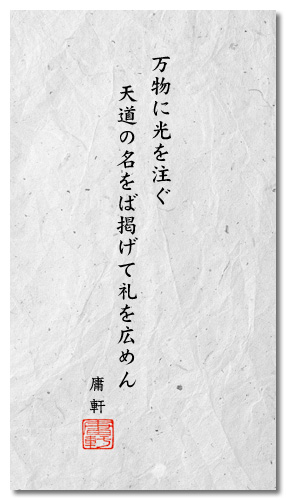 万物に光を注ぐ
天道の名をば掲げて礼を広めん
庸軒